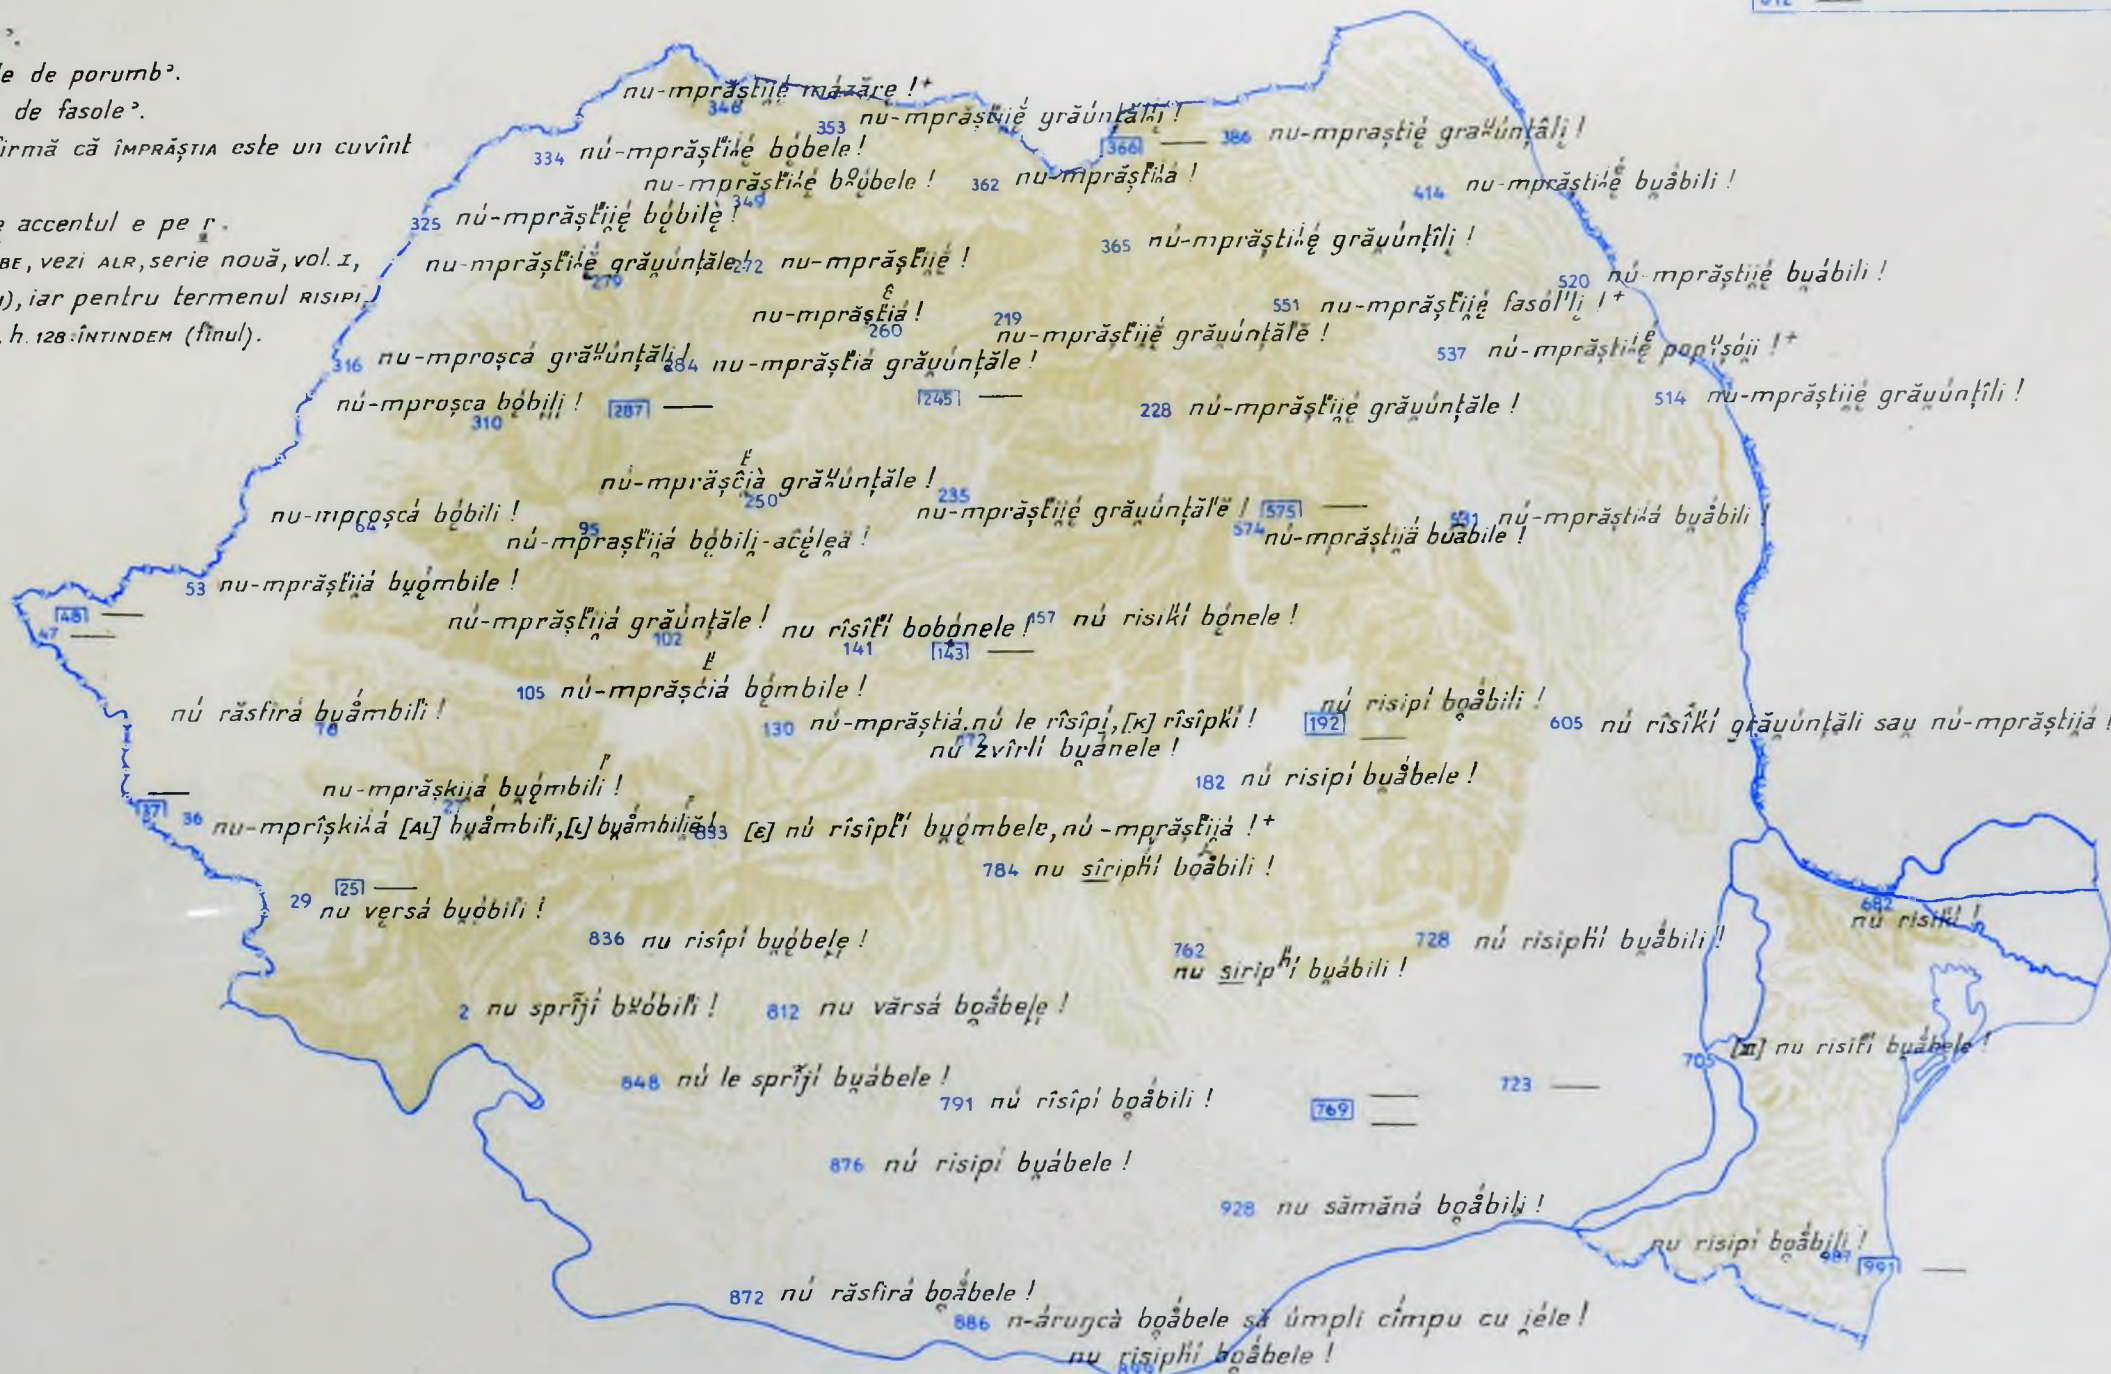 le de porumb».
de fasole».
firmă că ÎMPRĂȘTIA este un cuvînt
e accentul e pe r.
BE, vezi ALR, serie nouă, vol. I,
), iar pentru termenul RISIPI,
, h. 128: ÎNTINDEM (fînul).
812 —
nu-mprăștii̯é mázăre !+
346
353 nu-mprăștii̯é grăúnțăli̯ !
[366] —
386 nu-mpraștié graᵘúnțâli̯ !
334 nú-mprăștii̯é bóbele !
nu-mprăștii̯é bo͡úbele !
349
362 nu-mprăștii̯á !
414 nu-mprăștii̯é bu̯ábili !
325 nú-mprăștii̯é bóbilè !
365 nú-mprăștii̯é grău̯únțîli̯ !
nu-mprăștii̯é grău̯únțăle !
279
272 nu-mprăștii̯é !
520 nú-mprăștii̯é bu̯ábili !
551 nu-mprăștii̯é fasóľli̯ !+
nu-mprăștiá !
260
219
nu-mprăștii̯é grău̯únțăľĕ !
537 nú-mprăștii̯é popᵘșói̯i !+
316 nu-mproșcá grăᵘúnțăli̯ !
284 nu-mprăștiá grău̯únțăle !
514 nu-mprăștii̯é grău̯únțîli !
nú-mproșca bóbili̯ !
310
[287] —
[245] —
228 nú-mprăștii̯é grău̯únțăle !
nú-mprășĉi̯à grăᵘúnțăle !
250
235
nu-mprăștii̯é grău̯únțăľĕ !
[575] —
531 nú-mprăștii̯á bu̯ábili
nu-mproșcá bóbili !
64
95
nú-mpraștii̯á bóbili̯-aĉéle̯a !
574 nú-mprăștii̯á bu̯ábile !
53 nu-mprăștii̯á bu̯ómbile !
[48] —
47 —
nú-mprăștii̯á grăúnțăle !
102
nu rîsîťí bobónele !
141
[143] —
157 nú risiḱí bónele !
105 nú-mprășćiá bómbile !
nú răsfirá bu̯ámbiľi !
76
130 nú-mprăștiá, nú le rîsîpí, [K] rîsîpḱí !
172
nu zvîrlí bu̯ánele !
nú risipí bo̯ábili !
[192] —
605 nú rîsîḱí grău̯únțăli sau̯ nú-mprăștii̯á !
182 nú risipí bu̯ábele !
nu-mprășkii̯á bu̯ómbili !
27
[37] —
36 nu-mprîșkii̯á [AL] bu̯ámbiľi, [L] bu̯ámbili̯ĕ !
833 [ε] nú rîsîpťí bu̯ómbele, nú-mprăștii̯á !+
784 nu sîripḣí bo̯ábili !
[25] —
29 nu versá bu̯óbiľi !
836 nu risîpí bu̯óbele̯ !
762
nu siripʰí bu̯ábili !
728 nú risipḣí bu̯ábili !
682
nú risiḱí !
2 nu sprîjí bᵘóbiľi !
812 nu vărsá bo̯ábele̯ !
705 [III] nu risiťí bu̯ábele !
848 nú le sprîjí bu̯ábele !
791 nú rîsîpí bo̯ábili !
[769] —
—
723 —
876 nú risipí bu̯ábele !
928 nu sămăná bo̯ábili̯ !
nu risipí bo̯ábili !
987
[991] —
872 nú răsfirá bo̯ábele !
886 n-áruŋcà bo̯ábele să úmpli cîmpu cu i̯éle !
nu risipḣí bo̯ábele !
899